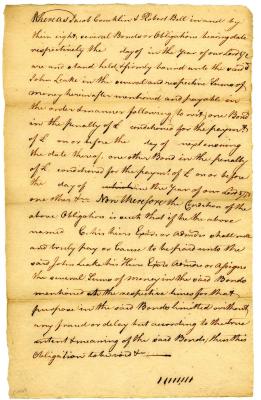 Whereas Jacob Conklin & Robert Bell in and by
their eight, several Bonds or Obligations bearing date
respectively the day of in the year of our Lord &c
are and stand held & firmly bound unto the said
John Leake in the several and respective Sums of
money hereafter mentioned and payable in
the order & manner following to wit, one Bond
in the penalty of £ conditioned for the payment
of £ on or before the day of next ensuing
the date thereof, one other Bond in the penalty
of £ conditioned for the payment of £ on or before
the day of in the Year of our Lord &c
one other &c Now Therefore the Condition of the
above Obligation is such that if the above
named C. his heirs Exrs or Admrs shall well
and truly pay or cause to be paid unto the
said John Leake his Heirs Exrs Admrs or Assigns
the several Sums of money in the said Bonds
mentioned at the respective times for that
purpose in the said Bonds limitted without
any fraud or delay but according to the true
intent & meaning of the said Bonds, then this
Obligation to be void &c